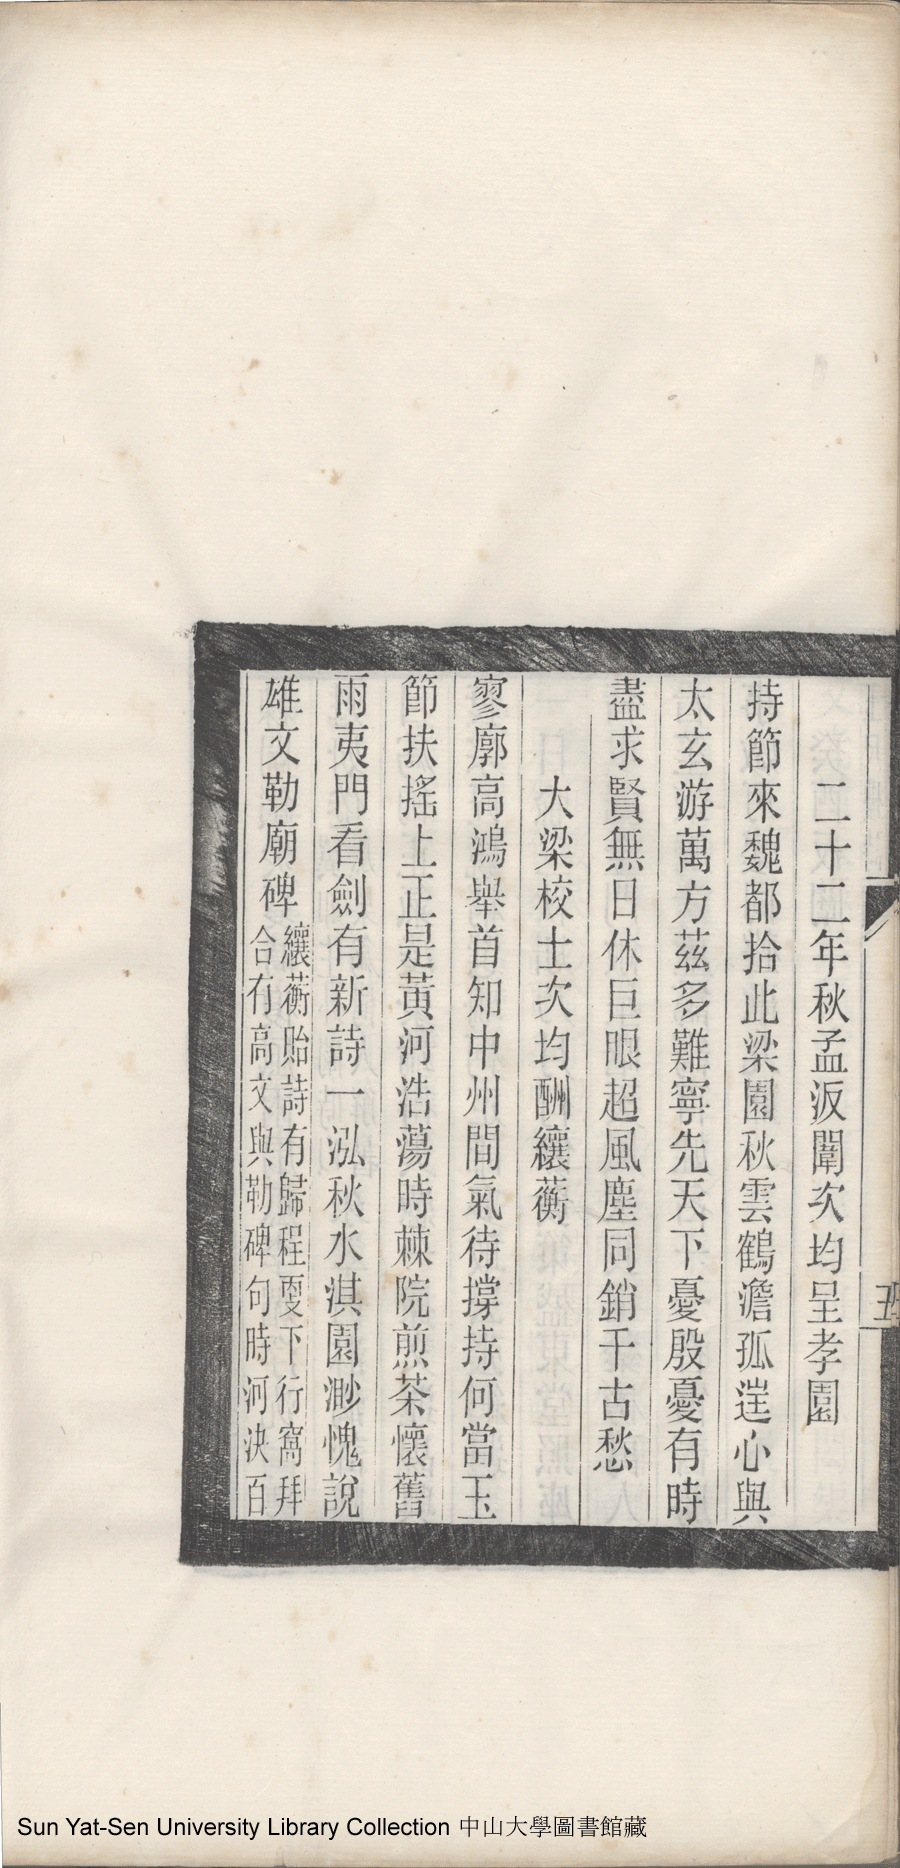 二十二年秋孟汳闈次均呈孝園
持節來魏都拾此梁園秋雲鶴澹孤逕心與
太玄游萬方茲多難寧先天下憂殷憂有時
盡求賢無日休巨眼超風塵同銷千古愁
大梁校士次均酬纕蘅
寥廓高鴻舉首知中州間氣待撐持何當玉
節扶搖上正是黃河浩蕩時棘院煎茶懷舊
雨夷門看劍有新詩一泓秋水淇園渺愧說
雄文勒廟碑
纕蘅貽詩有歸程更下行窩拜
合有高文與勒碑句時河決百
五
Sun Yat-Sen University Library Collection 中山大學圖書館藏